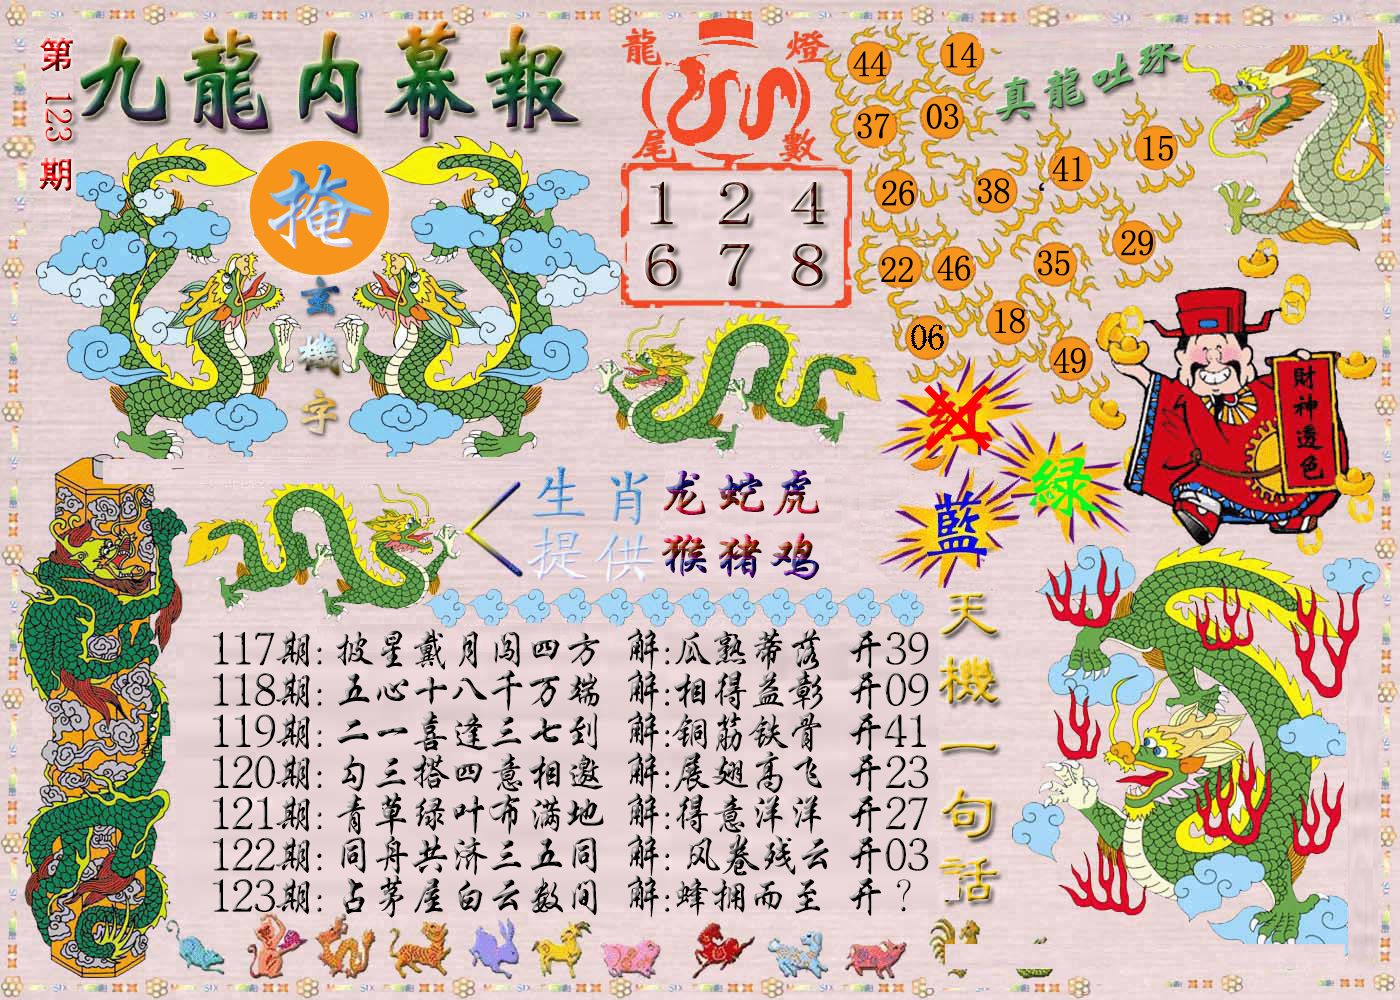 第123期
九龍内幕報
掩
玄機字
龍燈
尾數
1 2 4
6 7 8
真龍吐珠
44 14
37 03
41 15
26 38
29
22 46 35
06 18
49
財神透色
紅
緑
藍
生肖 龙蛇虎
提供 猴猪鸡
天機一句話
117期: 披星戴月闯四方 解:瓜熟蒂落 开39
118期: 五心十八千万端 解:相得益彰 开09
119期: 二一喜逢三七到 解:铜筋铁骨 开41
120期: 勾三搭四意相邀 解:展翅高飞 开23
121期: 青草绿叶布满地 解:得意洋洋 开27
122期: 同舟共济三五同 解: 风卷残云 开03
123期: 占茅屋白云数间 解:蜂拥而至 开 ?